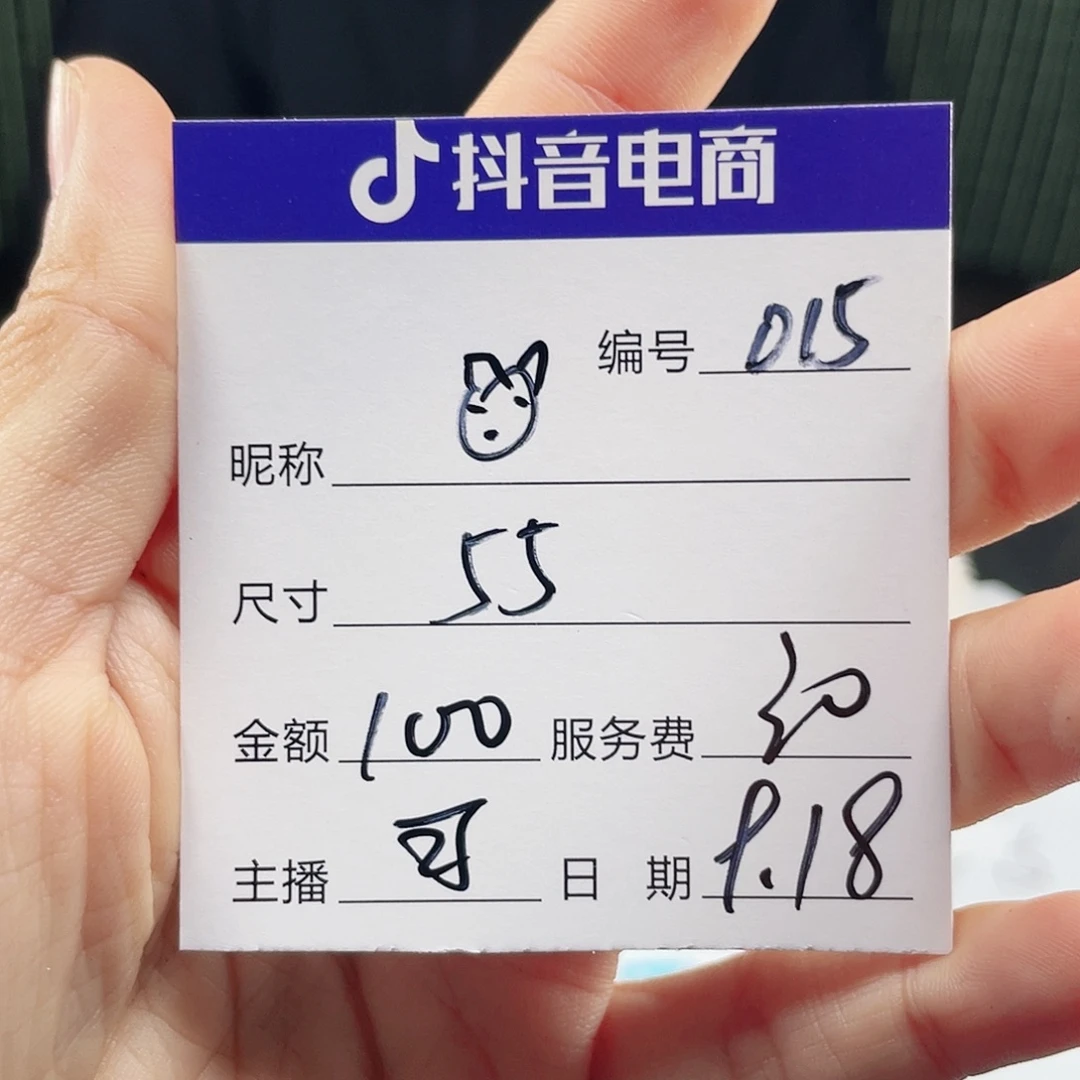 抖音电商
编号 015
昵称
尺寸 55
金额 100 服务费
主播 可 日期 9.18